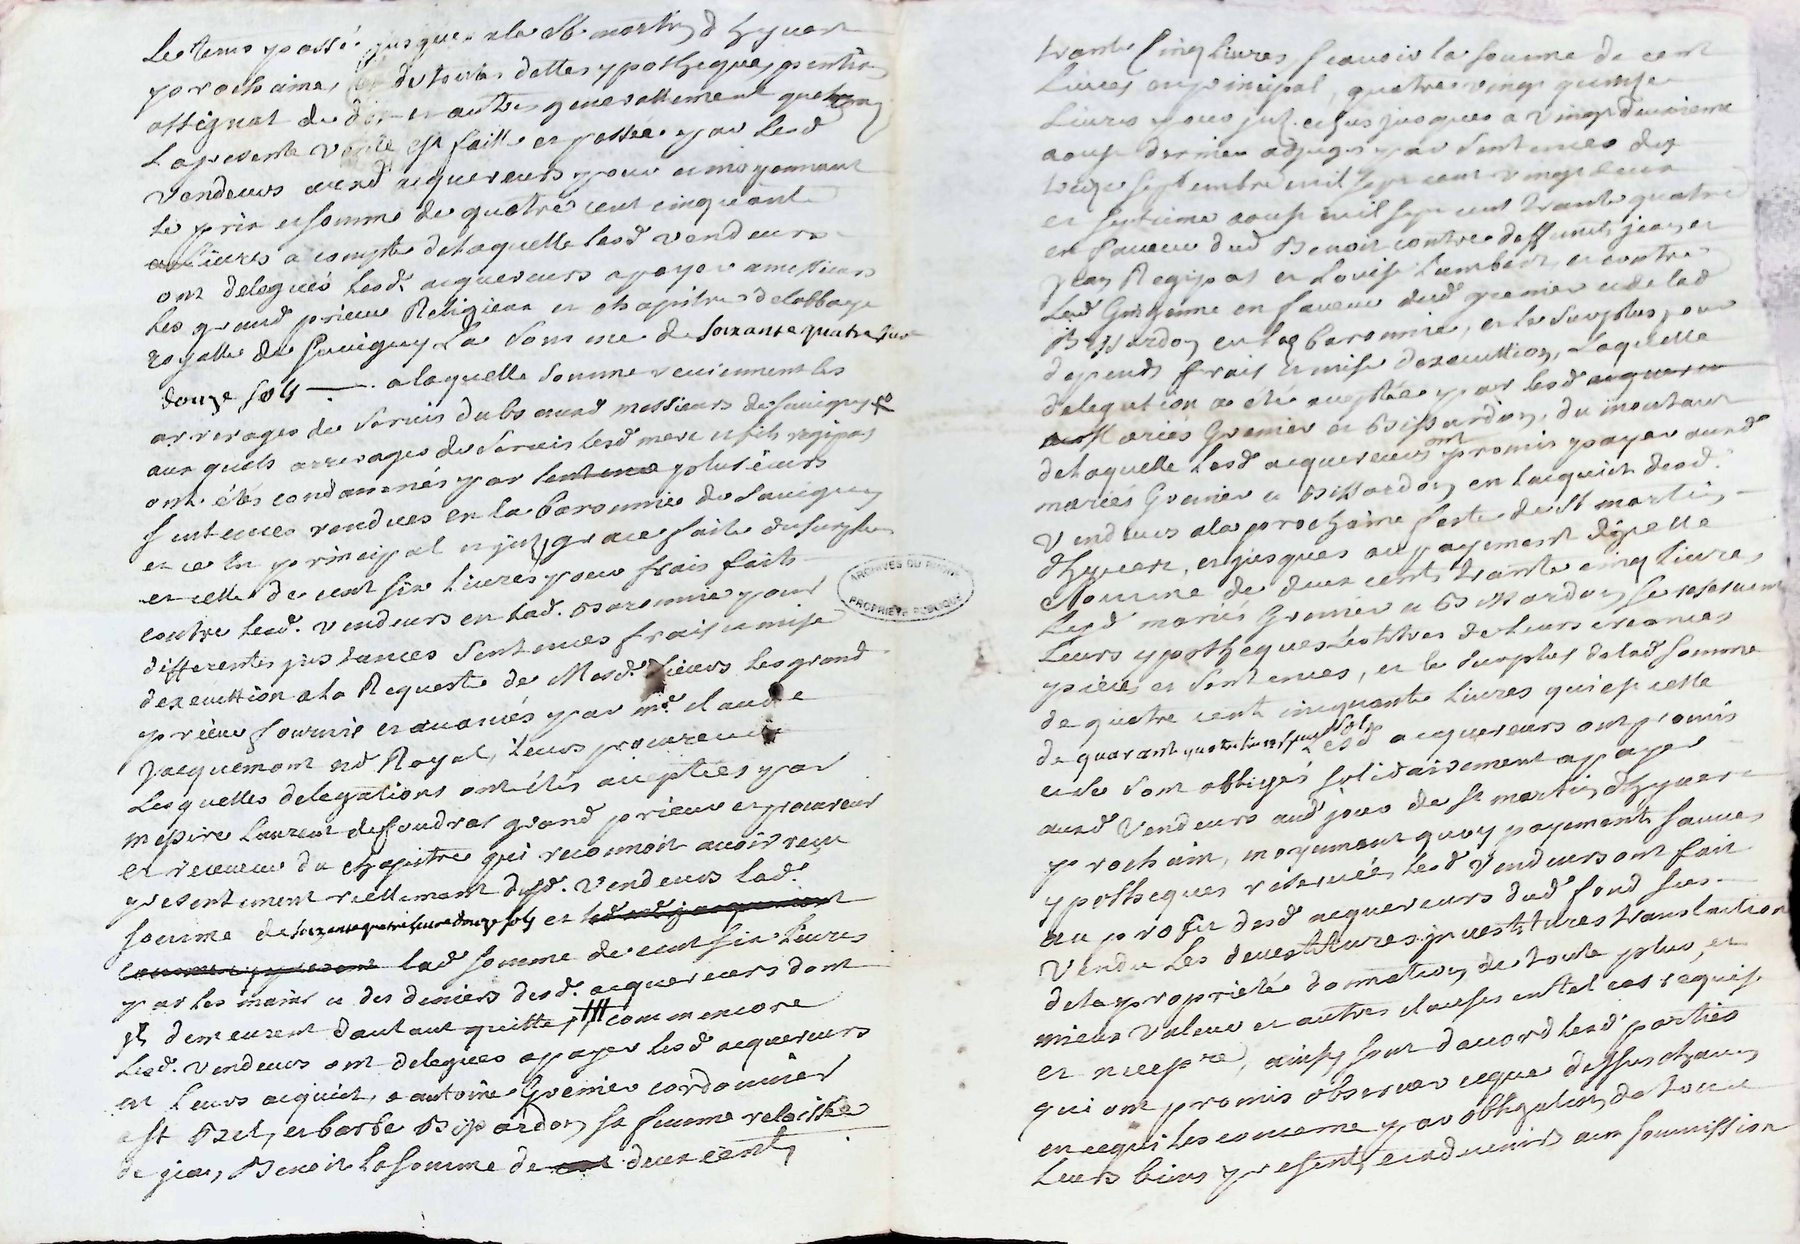 Le tems passé jusques a la St martin d hyvert
prochaine, et de toutes dettes ypotheques pention
assignat de dot et autres generallement quelconq
La presente vente est faitte et passée par Lesd
vendeurs ausd acquereurs pour et moyennant
le prix et somme de quatre cent cinquante
livres a compte de laquelle lesd vendeurs
ont delegués Lesd. acquereurs a payer a messieurs
les grand prieur Religieux et chapitre de labbaye
royalle de Savigny La somme de soixante quatre livre
douze sols —. a laquelle somme reviennent les
arrerages de servis dubs ausd messieurs de Savigny
aux quels arrerages de servis lesd mere et fils regipas
ont étés condamnés par sentence plusieurs
sentences rendues en la baronnie de Savigny
et ce en principal et jnt, grace faite du surplus
et celle de cent six livres pour frais faits
contre lesd. vendeurs en lad. Baronnie pour
differentes jnstances sentences frais et mise
dexecuttion a la Requeste de Mesd. sieurs les grand
prieur fournis et avancés par me. claude
Jacquemont nore Royal, leurs procureur
Lesquelles delegations ont étés acceptées par
messire Laurent de foudras grand prieur et procureur
et receveur du chapitre qui reconnoit avoir reçu
presentement reellement desd. vendeurs lad.
somme de soixante quatre livre douze sols et led me jacquemont
lad somme de cent six livres
par les mains et des deniers desd. acquereurs dont
jls demeurent dautant quittes, comm encore
Lesd. vendeurs ont delegués a payer lesd acquereurs
en leurs acquit, a antoine Grenier cordonnier
a St Bel, et barbe Bissardon sa femme relaissée
de jean Benoit la somme de cent deux cent
trante cinq livres, scavoir la somme de cent
Livres en principal, quatre vingt quinze
Livres pour jnt. echus jusques a vingt deuxieme
aoust dernier adjugés par sentences des
treize septembre mil sept cent vingt deux
et septieme aoust mil sept cent trante quatre
en faveur dud Benoit contre deffunts jean et
jean Regipas et Louise Lambert, et contre
Led. Guikenne en faveur dud grenier et de lad
Bissardon en lad baronnie, et le surplus pour
depends frais et mise dexecuttion, Laquelle
delegation a été acceptée par lesd acquereu
mariés Grenier et Bissardon, du montant
de laquelle Lesd acquereurs ont promis payer ausd
mariés Grenier et Bissardon en lacquit desd.
vendeurs a la prochaine feste de St martin
dhyvert, et jusques au payement dicelle
Somme de deux cent trante cinq livres
Lesd mariés Grenier et Bissardon se reservent
Leurs ypotheques Les titres de leurs creances
pieces et sentences, et le surplus de lad somme
de quatre cent cinquante livres qui est celle
de quarant quatre livres huit sols Lesd acquereurs ont promis
et se sont obligés solidairement a payer
ausd vendeurs aud jour de St martin dhyvert
prochain, moyennant quoy payement sauves
ypotheques reservées lesd vendeurs ont fait
au profit desd acquereurs dud fond sus
vendu Les devestitures jnvestitures translation
de la propriété donnation de toute plus et
mieux valeur et autres clauses en tel cas requis
et neces.re, ainsy sont d'accord lesd parties
qui ont promis observer ceque dessus chacun
en ce qui les concerne par obligation de tous
Leurs biens presents et advenir aux soumission
ARCHIVES DU RHONE
PROPRIÉTÉ PUBLIQUE